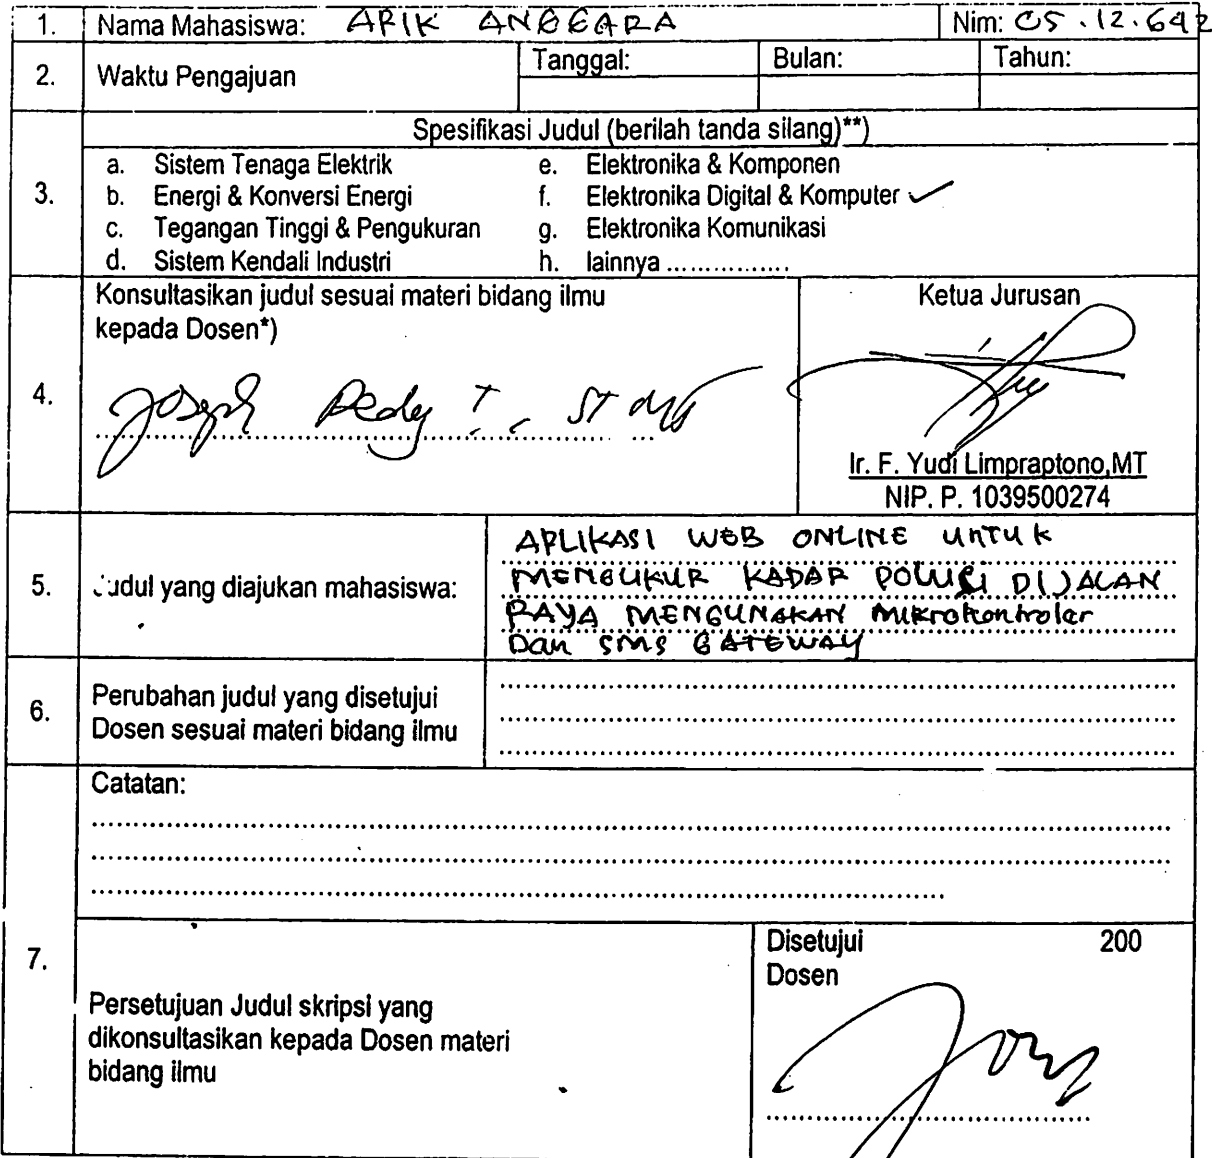 1. Nama Mahasiswa: ARIK ANGGARA Nim: 05.12.642
2. Waktu Pengajuan Tanggal: Bulan: Tahun:
3. Spesifikasi Judul (berilah tanda silang)**)
a. Sistem Tenaga Elektrik e. Elektronika & Komponen
b. Energi & Konversi Energi f. Elektronika Digital & Komputer ✓
c. Tegangan Tinggi & Pengukuran g. Elektronika Komunikasi
d. Sistem Kendali Industri h. lainnya ................
4. Konsultasikan judul sesuai materi bidang ilmu
kepada Dosen*)
Joseph Dedy I, ST MT
Ketua Jurusan
Ir. F. Yudi Limpraptono,MT
NIP. P. 1039500274
5. Judul yang diajukan mahasiswa:
APLIKASI WEB ONLINE UNTUK
MENGUKUR KADAR POLUSI DIJALAN
RAYA MENGUNAKAN Mikrokontroler
Dan SMS GATEWAY
6. Perubahan judul yang disetujui
Dosen sesuai materi bidang ilmu
7. Catatan:
Persetujuan Judul skripsi yang
dikonsultasikan kepada Dosen materi
bidang ilmu
Disetujui 200
Dosen